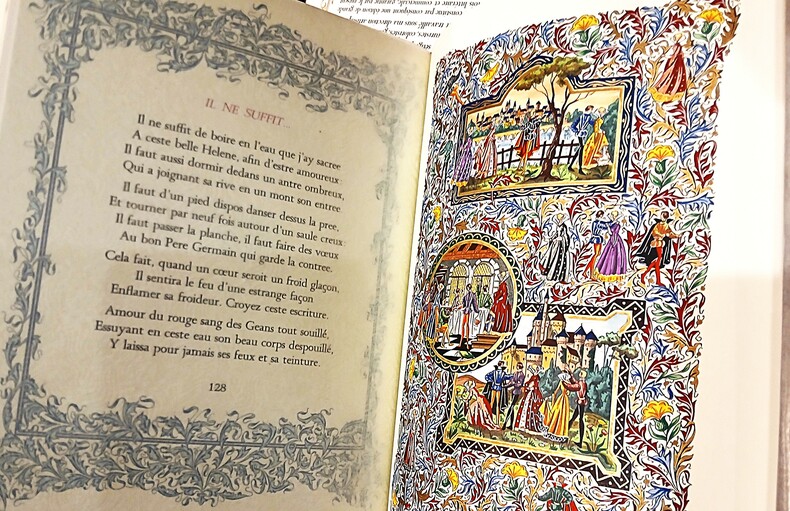 IL NE SUFFIT...
Il ne suffit de boire en l'eau que j'ay sacree
A ceste belle Helene, afin d'estre amoureux:
Il faut aussi dormir dedans un antre ombreux,
Qui a joignant sa rive en un mont son entree.
Il faut d'un pied dispos danser dessus la pree,
Et tourner par neuf fois autour d'un saule creux:
Il faut passer la planche, il faut faire des vœux
Au bon Pere Germain qui garde la contree.
Cela fait, quand un cœur seroit un froid glaçon,
Il sentira le feu d'une estrange façon
Enflamer sa froideur. Croyez ceste escriture.
Amour du rouge sang des Geans tout souillé,
Essuyant en ceste eau son beau corps despouillé,
Y laissa pour jamais ses feux et sa teinture.
128